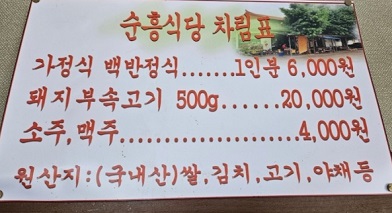 순흥식당 차림표
가정식 백반정식.......1인분 6,000원
돼지부속고기 500g......20,000원
소주,맥주.......................4,000원
원산지:(국내산)쌀,김치,고기,야채등